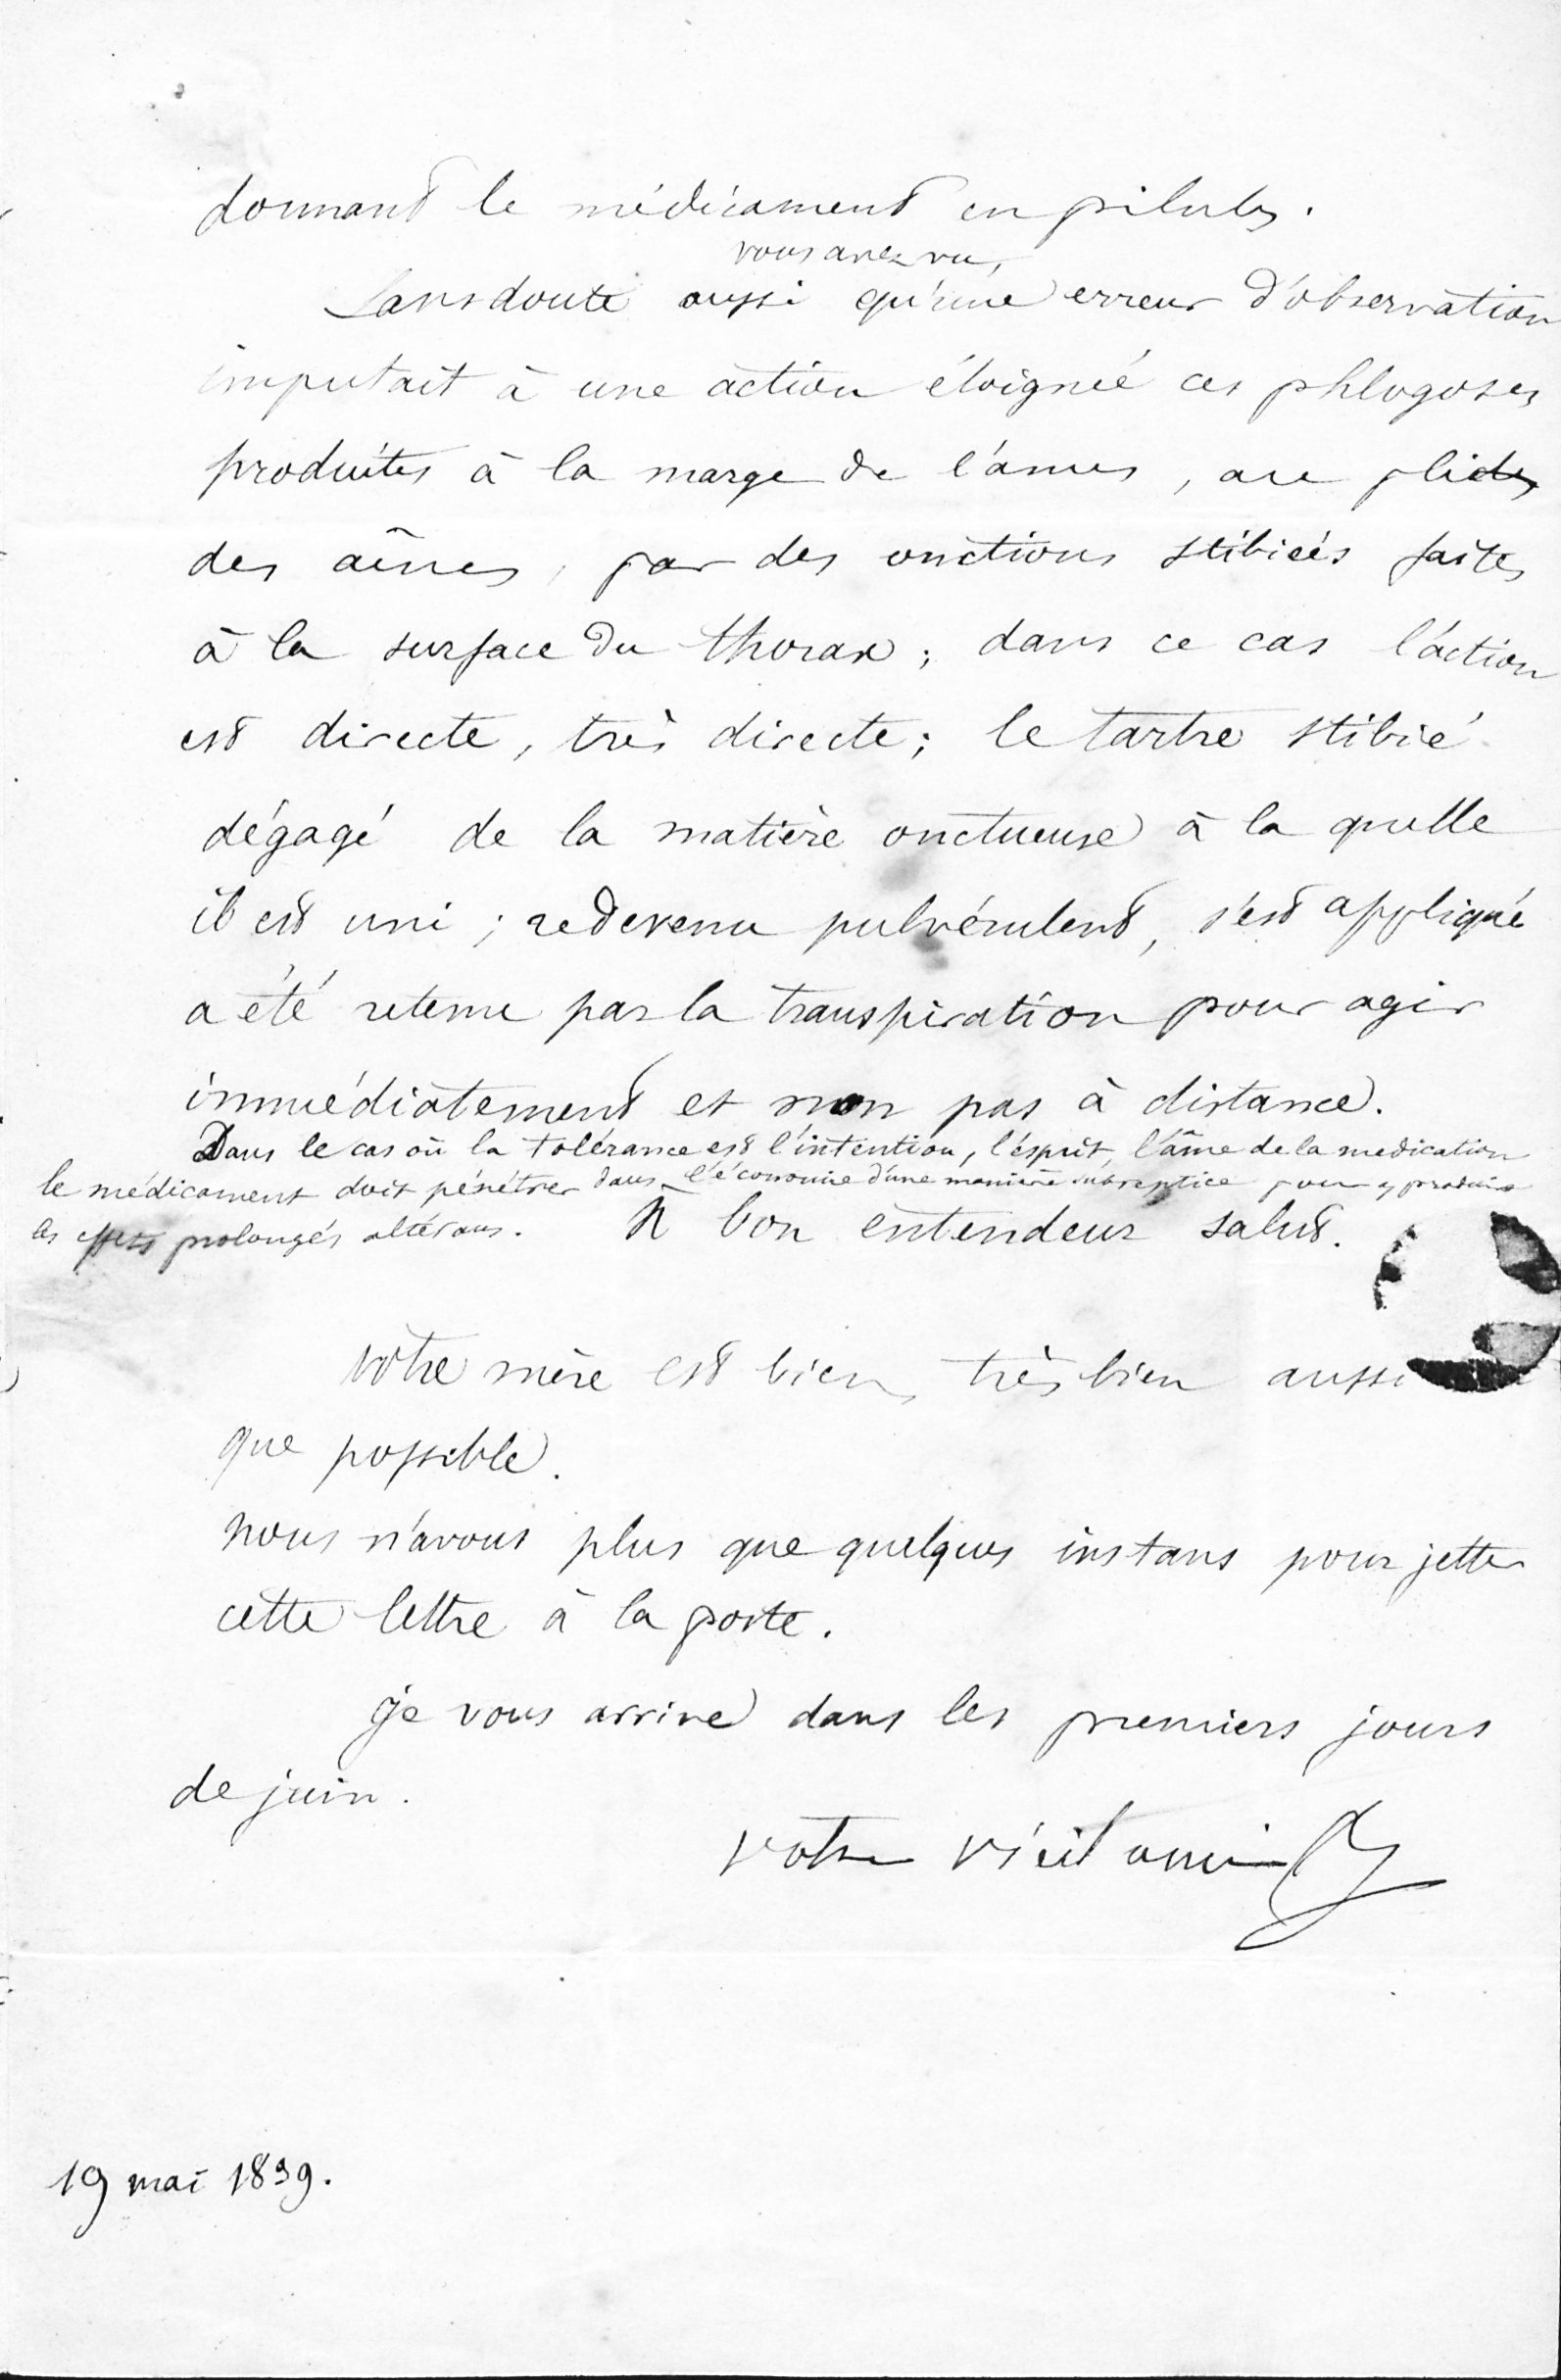 donnant le médicament en pilules.
vous avez vu,
Sans doute aussi qu'une erreur d'observation
imputait à une action éloignée ces phlogoses
produites à la marge de l'anus, au pli
des aînes, par des onctions stibiées faites
à la surface du thorax; dans ce cas l'action
est directe, très directe; le tartre stibié
dégagé de la matière onctueuse à la quelle
il est uni; redevenu pulvérulent, s'est appliqué
a été retenu par la transpiration pour agir
immédiatement et non pas à distance.
Dans le cas où la tolérance est l'intention, l'esprit, l'âme de la medication
le médicament doit pénétrer dans l'économie d'une manière subreptice pour y produire
les effets prolongés altérans. A bon entendeur salut.
Votre mère est bien, très bien aussi
que possible.
Nous n'avons plus que quelques instans pour jetter
cette lettre à la poste.
je vous arrive dans les premiers jours
de juin.
votre vieil ami
19 mai 1839.